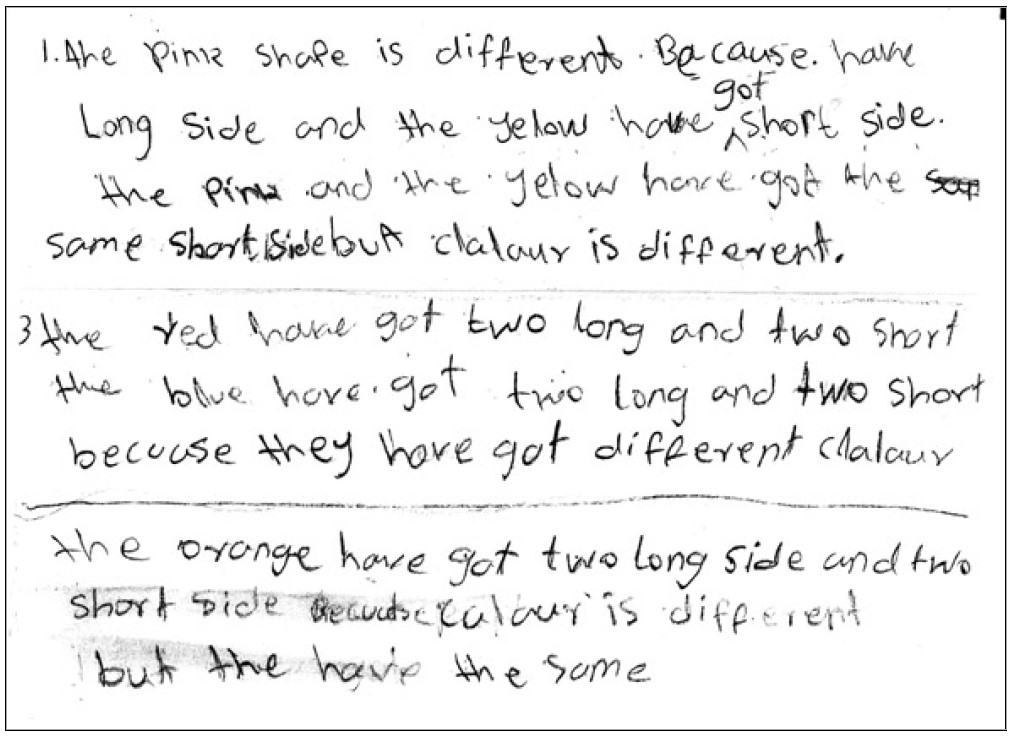 1. the pink shape is different. Because. have
got
Long side and the yelow have ^ short side.
the pink and the yelow have got the
same short side but clalour is different.
3 the red have got two long and two short
the blue have got two long and two short
becouse they have got different clalour
the orange have got two Long side and two
short side becuse calour is different
but the have the same